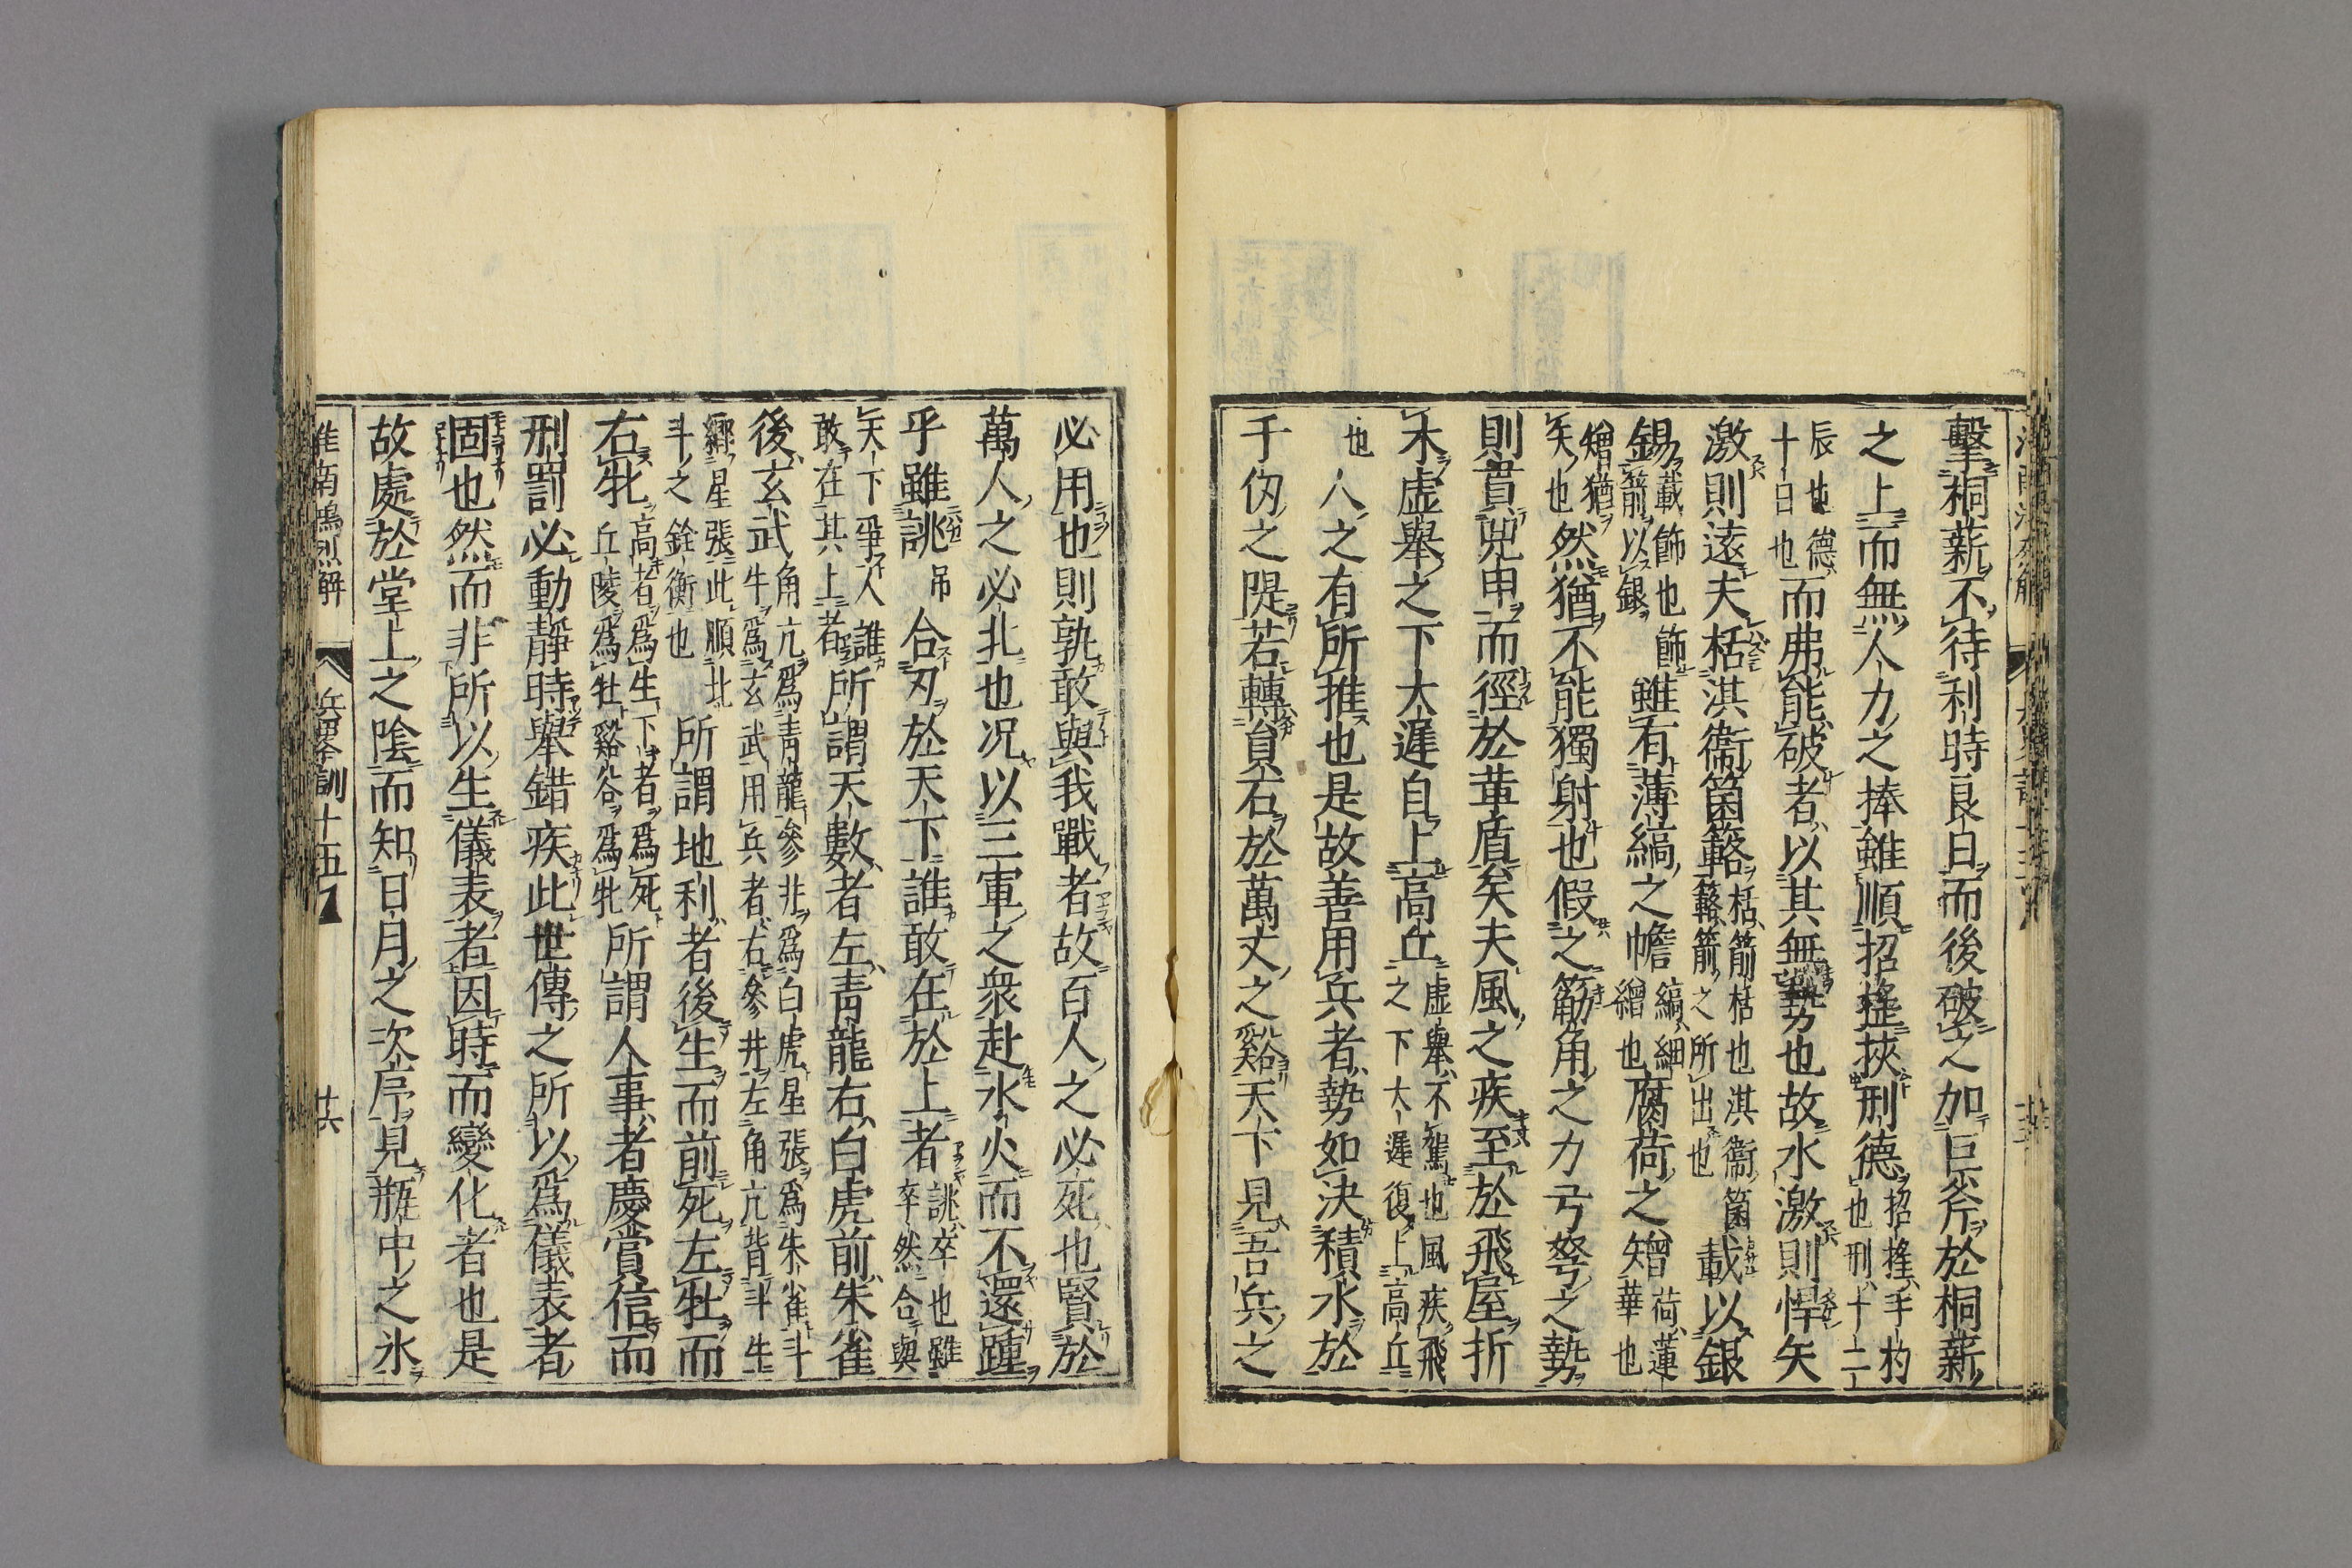 擊桐薪不待利時良日而後破之加巨斧於桐薪
之上而無人力之捧雖順招搖挾刑德招搖手杓
也刑十二
辰也德
十日也而弗能破者以其無勢也故水激則悍矢
激則遠夫栝淇衞箘簵栝箭栝也淇衞箘
簵箭之所出也載以銀
錫載飾也飾
箭以銀雖有薄縞之幨縞細
繒也腐荷之矰荷蓮
華也
矰猶
矢也然猶不能獨射也假之筋角之力弓弩之勢
則貫兕甲而徑於革盾矣夫風之疾至於飛屋折
木虛舉之下大遲自上高丘虛舉不駕也風疾飛
之下大遲復上高丘
也人之有所推也是故善用兵者勢如決積水於
千仞之隄若轉員石於萬丈之谿天下見吾兵之
必用也則孰敢與我戰者故百人之必死也賢於
萬人之必北也況以三軍之衆赴水火而不還踵
乎雖誂弔合刃於天下誰敢在於上者誂卒也雖
卒然合與
天下爭人誰
敢在其上者所謂天數者左青龍右白虎前朱雀
後玄武角亢爲青龍參井爲白虎星張爲朱雀斗
牛爲玄武用兵者右參井左角亢背斗生
經星張此順北
斗之銓衡也所謂地利者後生而前死左牡而
右牝高者爲生下者爲死
丘陵爲牡谿谷爲牝所謂人事者慶賞信而
刑罰必動靜時舉錯疾此世傳之所以爲儀表者
固也然而非所以生儀表者因時而變化者也是
故處於堂上之陰而知日月之次序見瓶中之氷
淮南鴻烈解
兵略訓十五
廿六